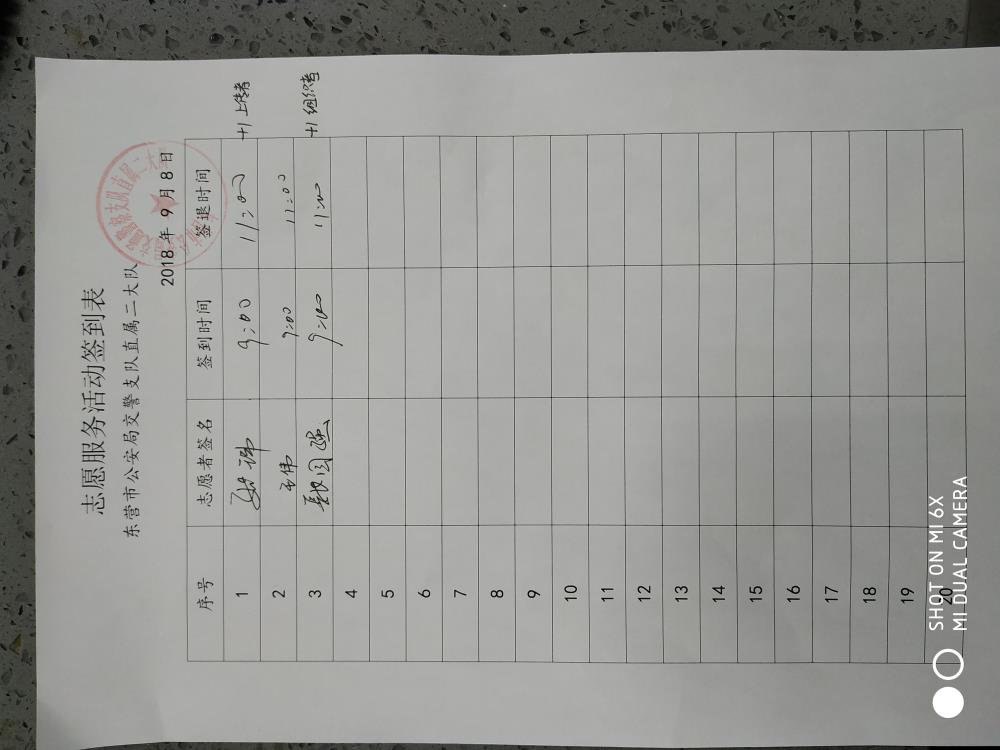 志愿服务活动签到表
东营市公安局交警支队直属二大队
2018年 9 月 8 日
序号 志愿者签名 签到时间 签退时间
1 9:00 11:00 +1 上传者
2 王伟 9:00 11:00
3 9:00 11:00 +1 组织者
4
5
6
7
8
9
10
11
12
13
14
15
16
17
18
19
20
SHOT ON MI 6X
MI DUAL CAMERA